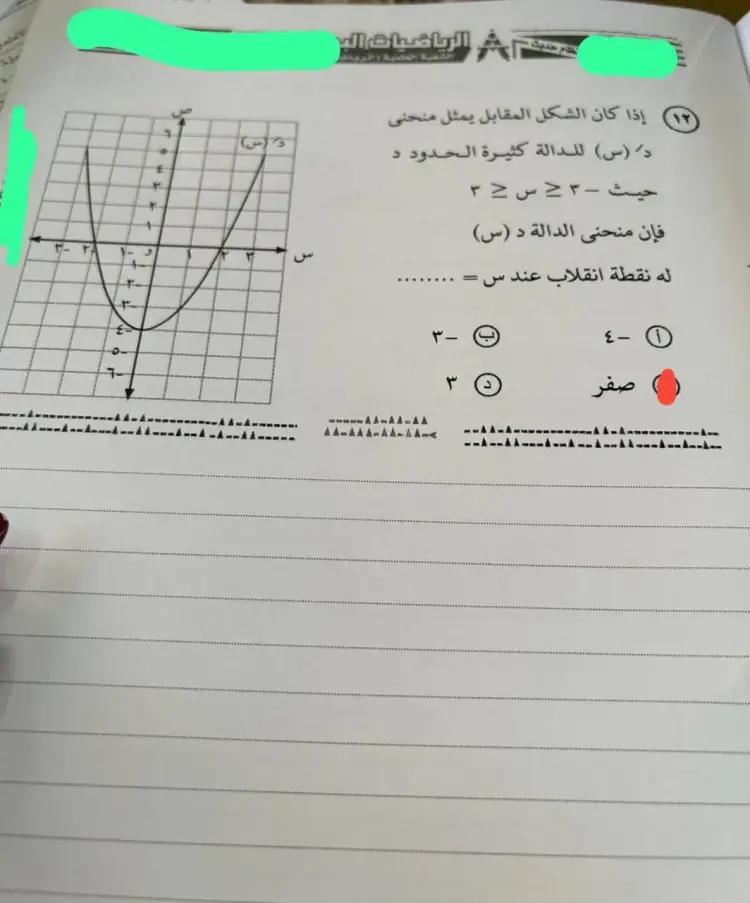 الرياضيات
١٢ إذا كان الشكل المقابل يمثل منحنى
دَ (س) للدالة كثيرة الحدود د
حيث −٣ ≤ س ≤ ٣
فإن منحنى الدالة د (س)
له نقطة انقلاب عند س = ........
أ −٤
ب −٣
صفر
د ٣
ص
دَ (س)
٦
٥
٤
٣
٢
١
−٣ −٢ −١ و ١ ٢ ٣ س
−١
−٢
−٣
−٤
−٥
−٦